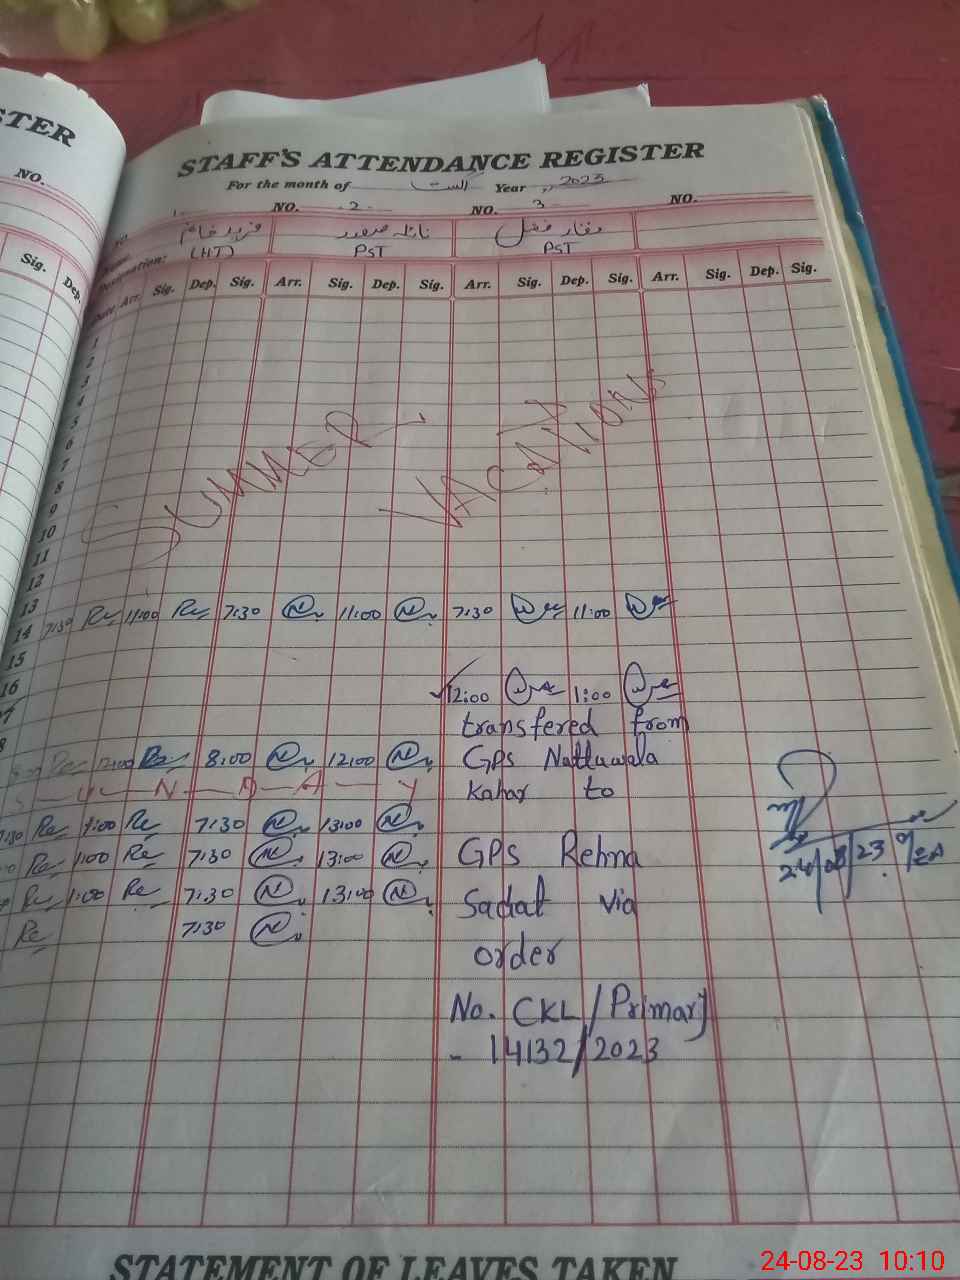 STER
NO.
Sig.
Dep.
STAFF'S ATTENDANCE REGISTER
For the month of اگست Year 2023
1 NO. 2 NO. 3 NO.
نائلہ صفدر
(HT) PST PST
Designation:
Date Arr. Sig. Dep. Sig. Arr. Sig. Dep. Sig. Arr. Sig. Dep. Sig. Arr. Sig. Dep. Sig.
1
2
3
4
5
6
7
8
9
10
11
12
13
SUMMER VACATIONS
14 7:30 Re 11:00 Re 7:30 N 11:00 N 7:30 11:00
15
16
17 12:00 1:00
transfered from
Re 12:00 Re 8:00 N 12:00 N GPS Nattuwala
S - U - N - D - A - Y Kahar to
7:30 Re 1:00 Re 7:30 N 13:00 N
Re 1:00 Re 7:30 N 13:00 N GPS Rehna
Re 1:00 Re 7:30 N 13:00 N Sadat via
Re 7:30 N
order
No. CKL/Primary
- 14132/2023
24/08/23
STATEMENT OF LEAVES TAKEN
24-08-23 10:10